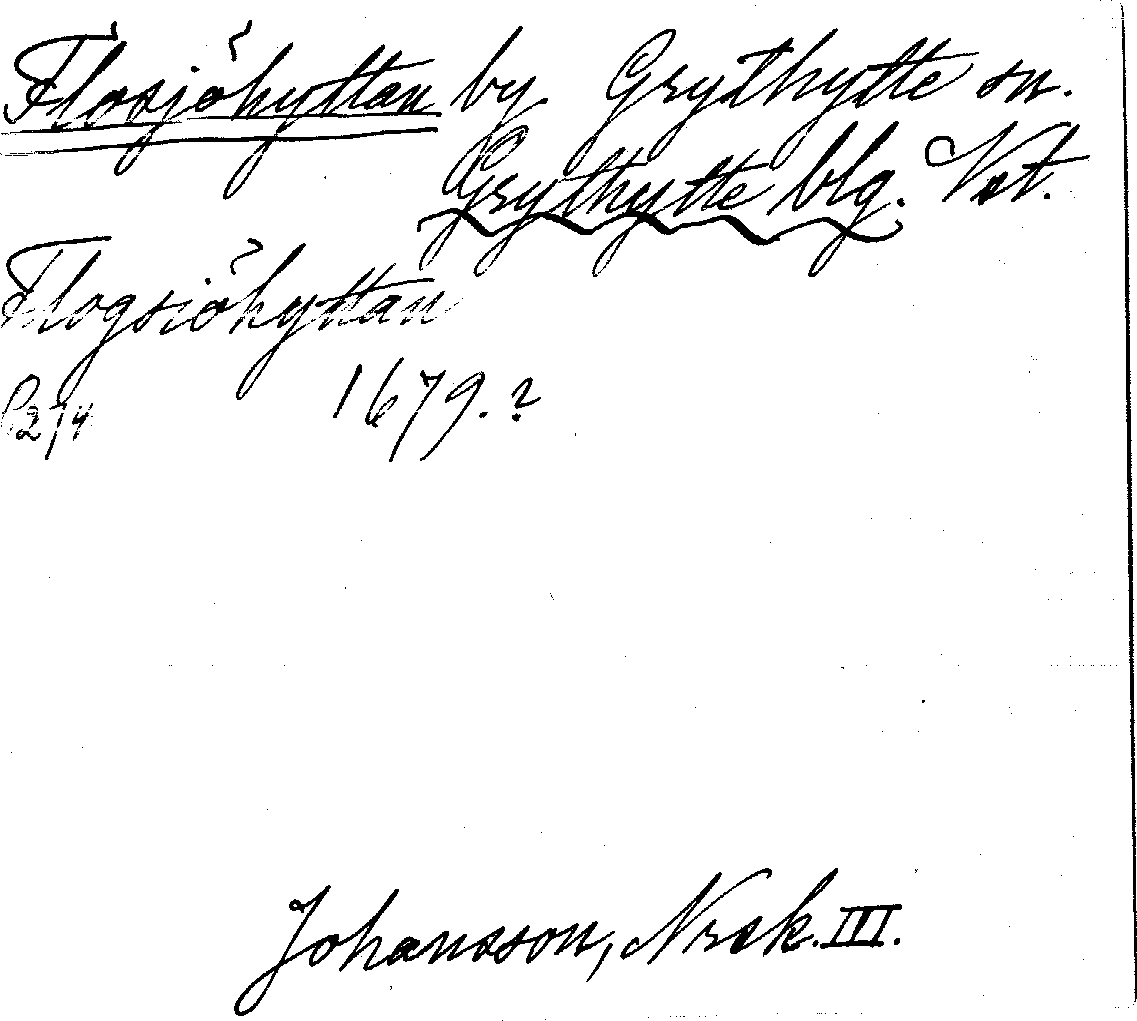 Flosjöhyttan by Grythytte sn.
Grythytte blg. Vst.
Flogsiöhyttan
P274 1679.?
Johansson, Nrsk. III.